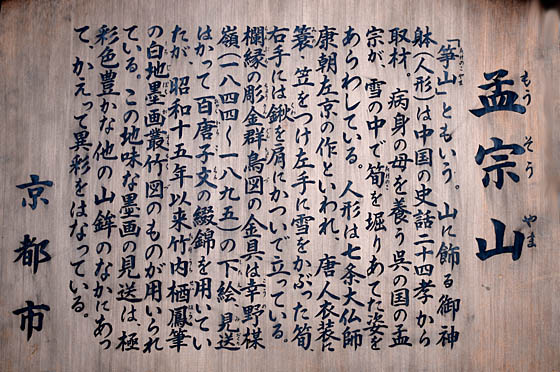 孟宗山
もうそうやま
「筍山」ともいう。山に飾る御神
躰(人形)は中国の史話二十四孝から
取材。病身の母を養う呉の国の孟
宗が、雪の中で筍を掘りあてた姿を
あらわしている。人形は七条大仏師
康朝左京の作といわれ、唐人衣装に
簑、笠をつけ左手に雪をかぶった筍、
右手には鍬を肩にかついで立っている。
欄縁の彫金群鳥図の金具は幸野楳
嶺(一八四四〜一八九五)の下絵、見送
はかつて百唐子文の綴錦を用いてい
たが、昭和十五年以来竹内栖鳳筆
の白地墨画叢竹図のものが用いられ
ている。この地味な墨画の見送は、極
彩色豊かな他の山鉾のなかにあっ
て、かえって異彩をはなっている。
京都市